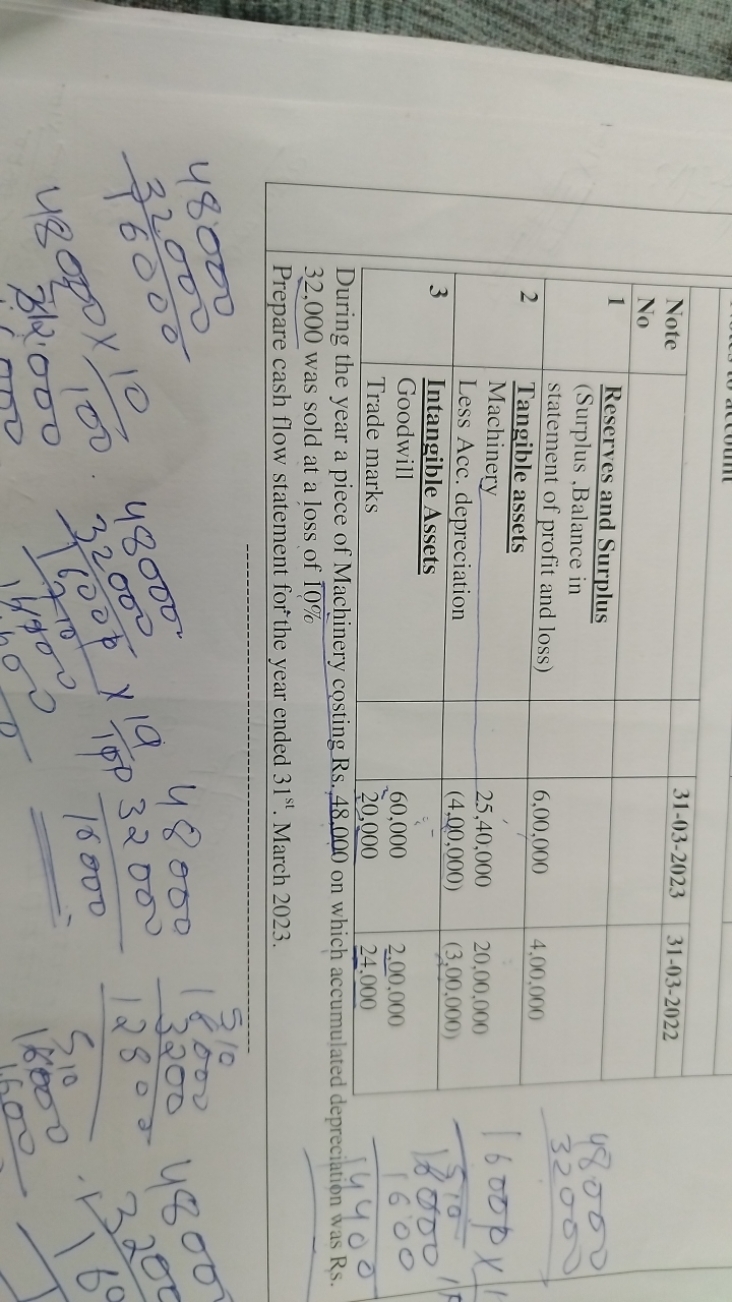 Notes to account
Note No 31-03-2023 31-03-2022
1 Reserves and Surplus
(Surplus ,Balance in
statement of profit and loss) 6,00,000 4,00,000
2 Tangible assets
Machinery 25,40,000 20,00,000
Less Acc. depreciation (4,00,000) (3,00,000)
3 Intangible Assets
Goodwill 60,000 2,00,000
Trade marks 20,000 24,000
During the year a piece of Machinery costing Rs. 48,000 on which accumulated depreciation was Rs.
32,000 was sold at a loss of 10%
Prepare cash flow statement for the year ended 31st. March 2023.
48000
32000
16000
1600
14400
48000
32000
16000
48000
32000
16000 × 10/100
48000
32000
16000
16000
3200
12800
48000
3200
48000 × 10/100
32000